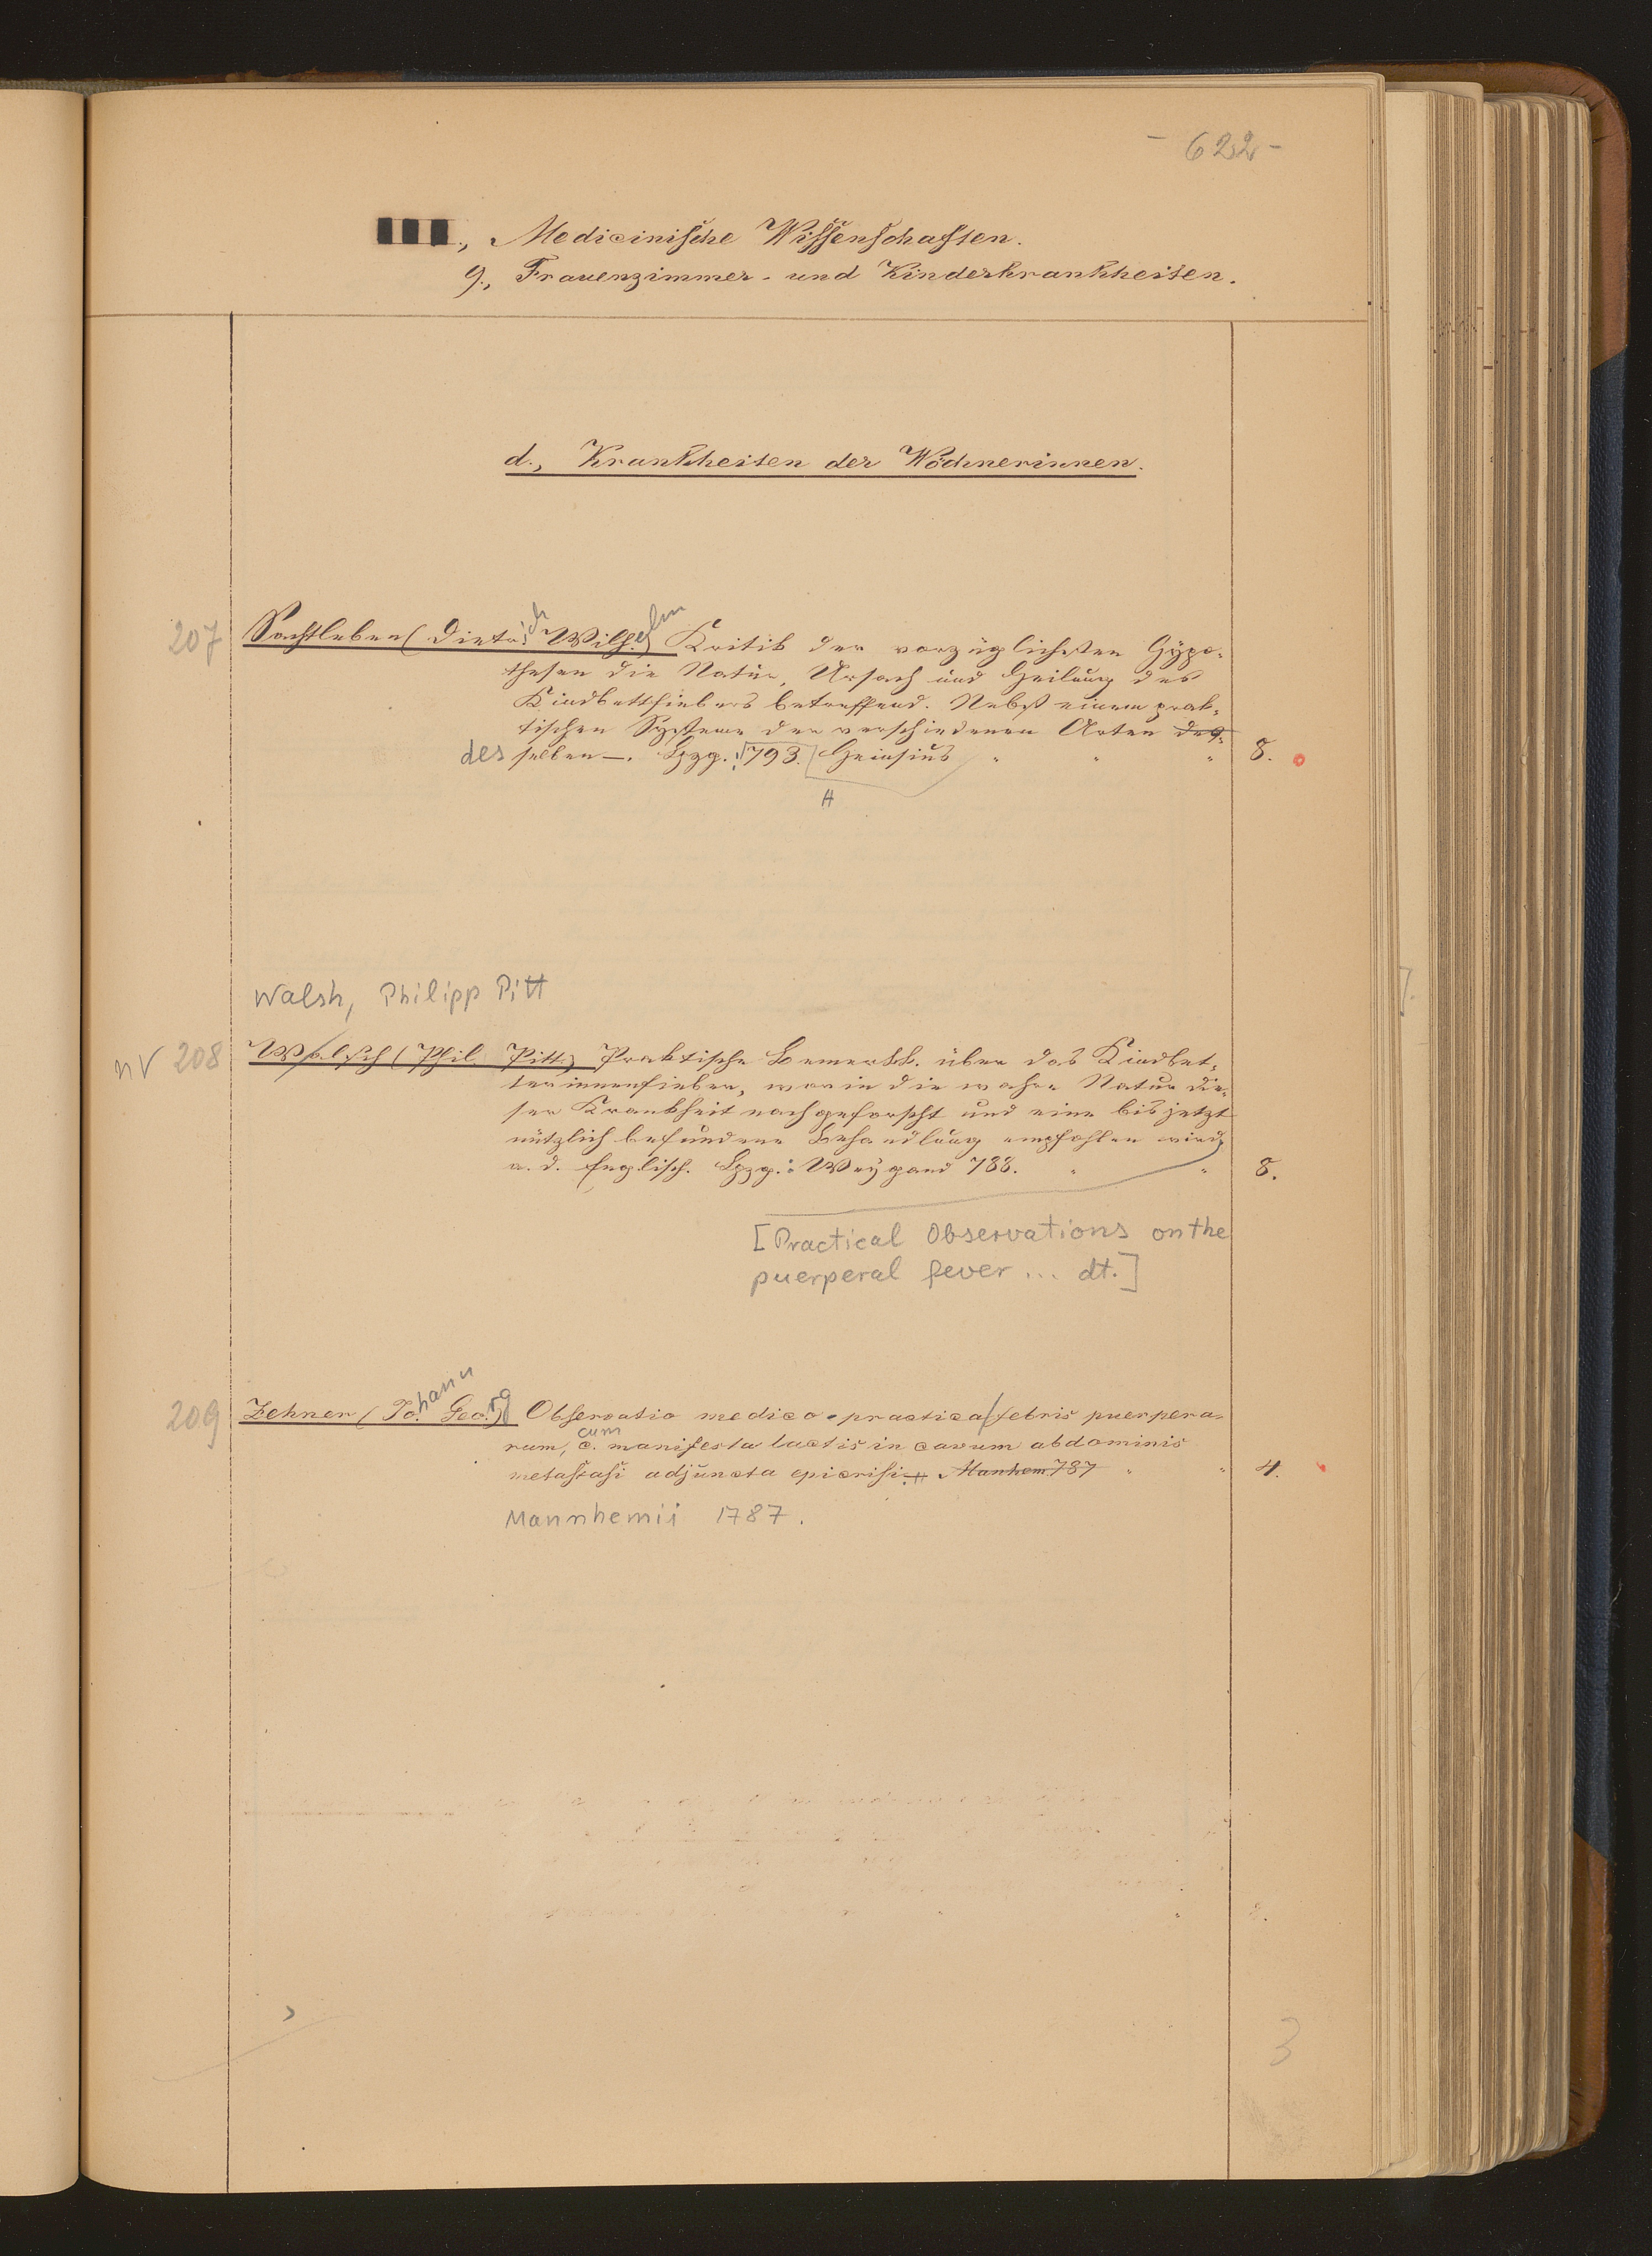 - 622 -
III., Medicinische Wissenschaften.
9., Frauenzimmer- und Kinderkrankheiten.
d., Krankheiten der Wöchnerinnen.
207 Sachtleben (Dietr.ich Wilh.elm) Kritik der vorzüglichsten Hypo-
thesen die Natur, Ursach und Heilung des
Kindbettfiebers betreffend. Nebst einem prak-
tischen Systeme der verschiedenen Arten des-
des selben —. Lpzg. 1793. Heinsius " " " 8.
H
Walsh, Philipp Pitt
nV 208 Walsch (Phil. Pitt.) Praktische Bemerkk. über das Kindbet-
terinnenfieber, worin die wahre Natur die-
ser Krankheit nachgeforscht und eine bis jetzt
nützlich befundene Behandlung empfohlen wird,
a. d. Englisch. Lpzg.: Weygand 788. " " 8.
[Practical Observations on the
puerperal fever ... dt.]
209 Zehner (Jo.hann Geo.rg) Observatio medico-practica febris puerpera-
rum, c. cum manifesta lactis in cavum abdominis
metastasi adjuncta epicrisi. Manhem 787 " " 4.
Mannhemii 1787.
3